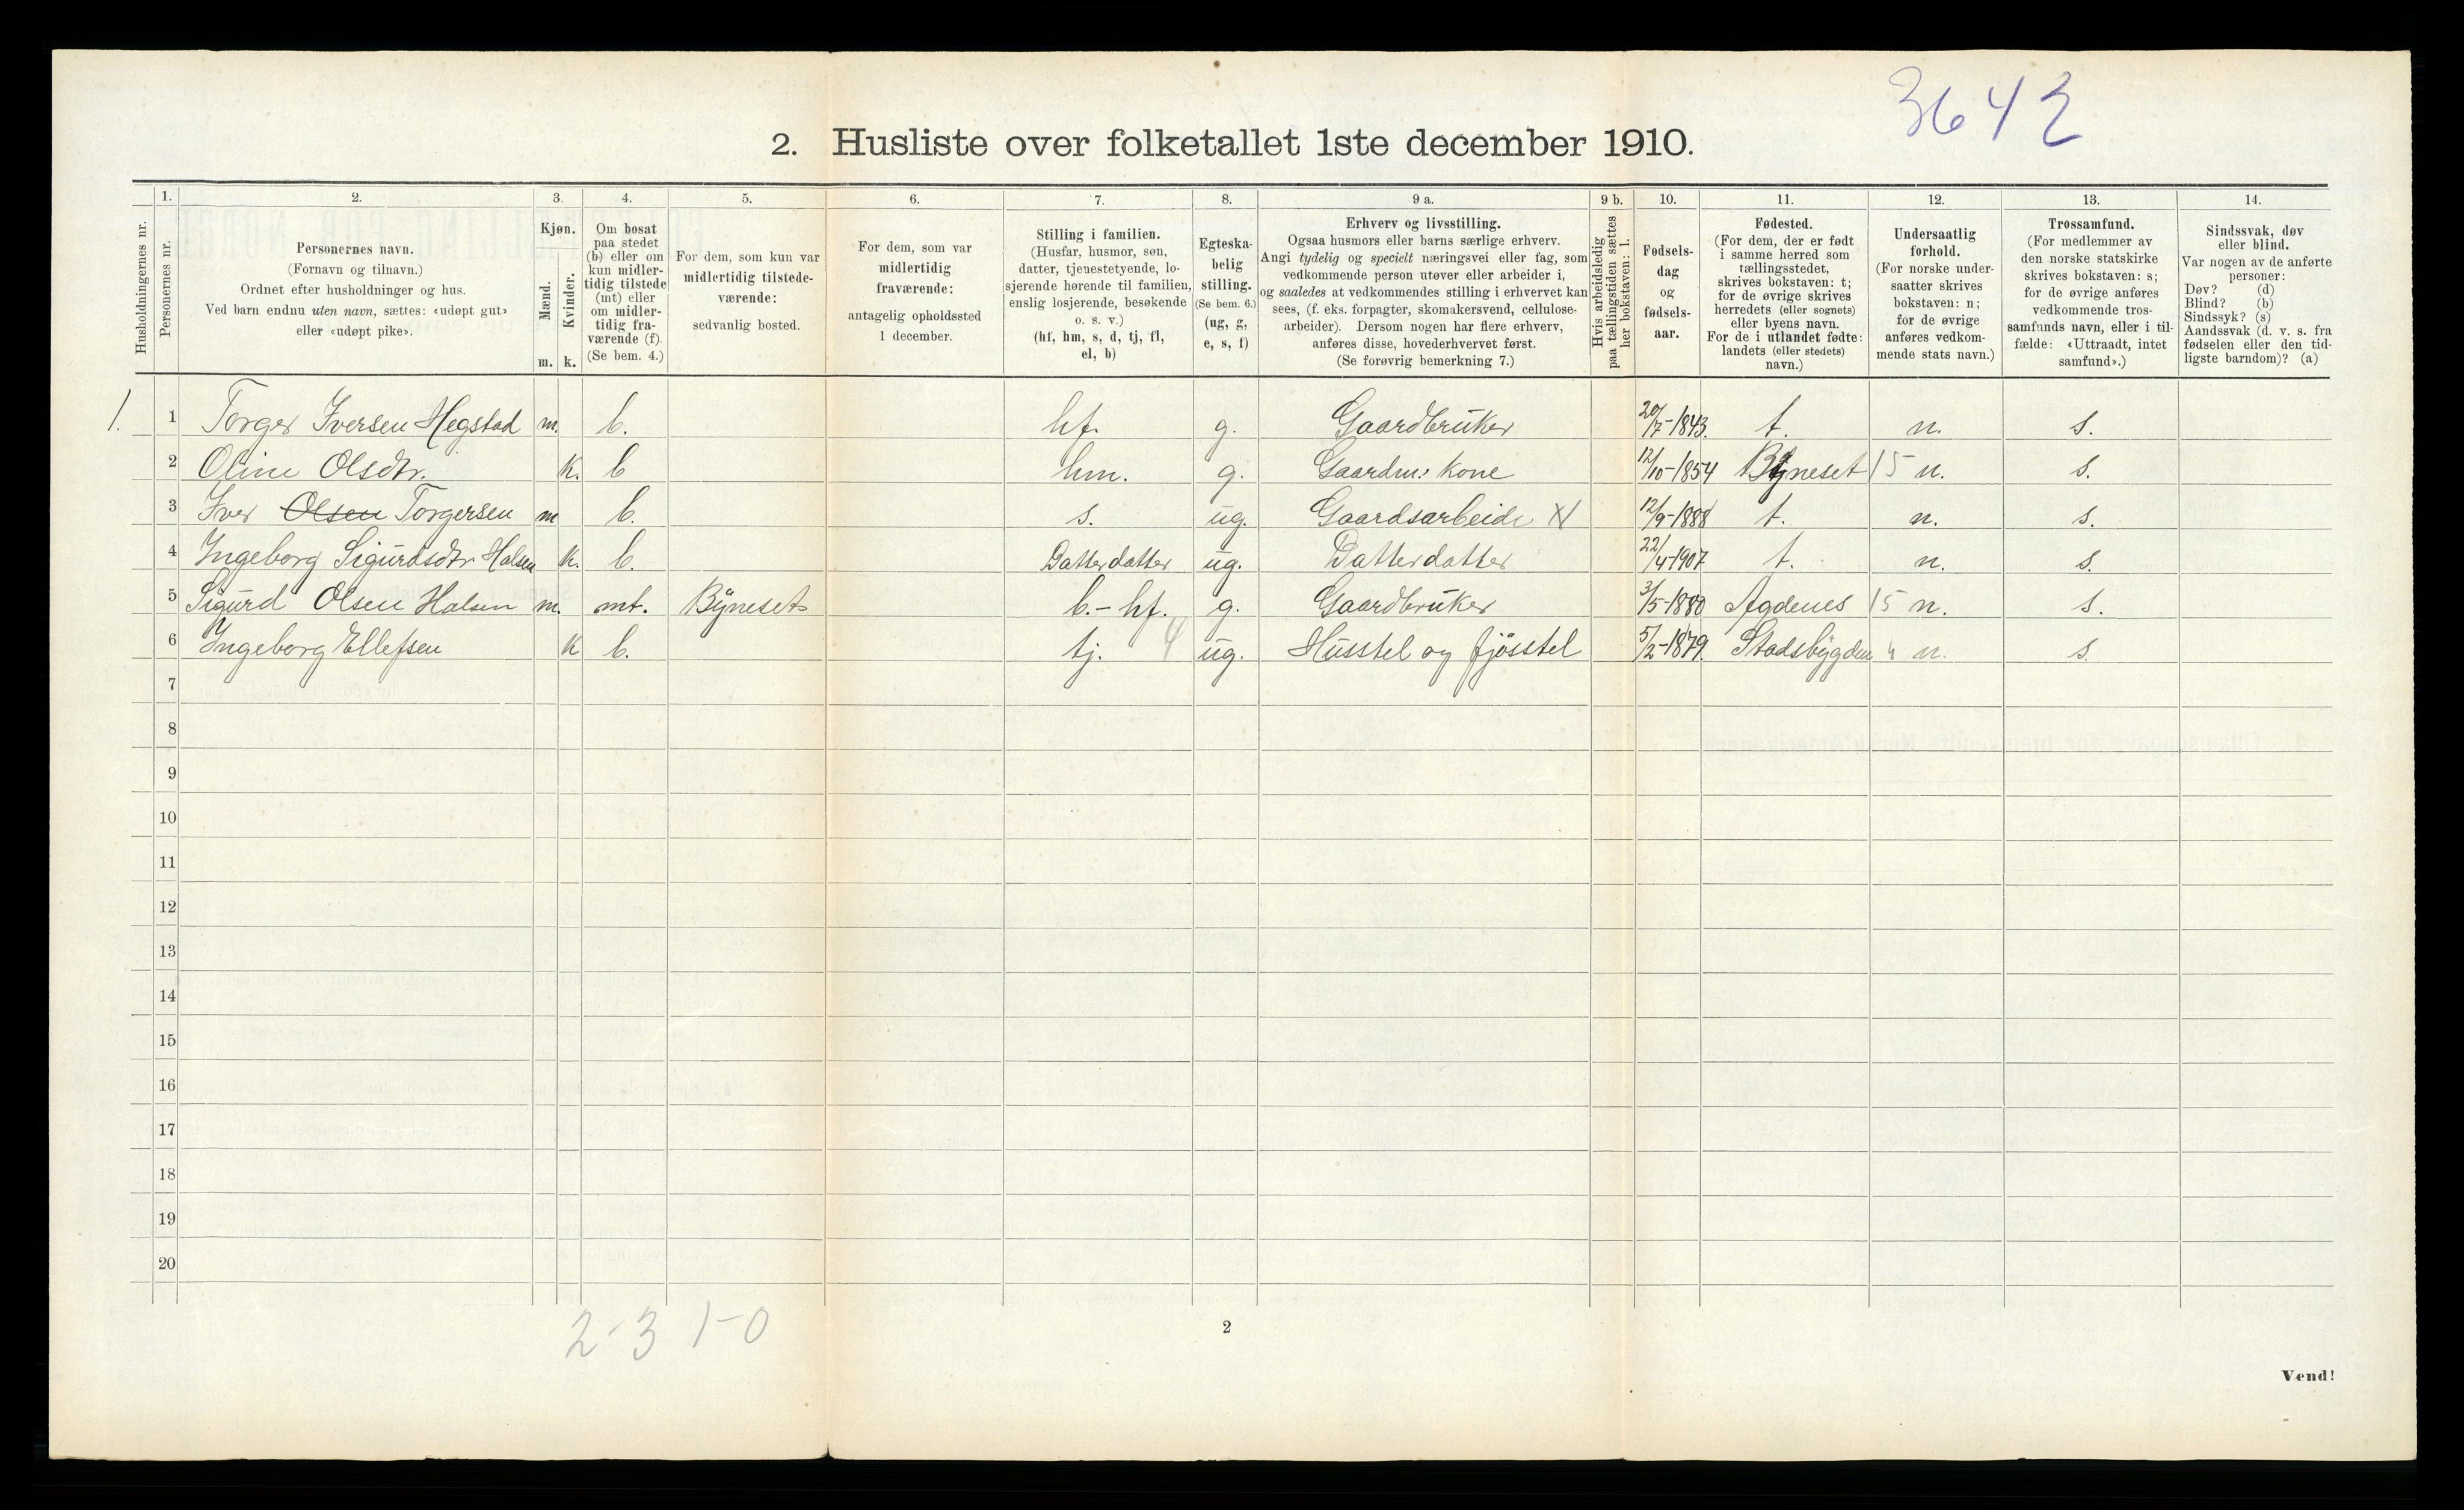 3642
2. Husliste over folketallet 1ste december 1910.
Husholdningernes nr.
1. Personernes nr.
2. Personernes navn. (Fornavn og tilnavn.) Ordnet efter husholdninger og hus. Ved barn endnu uten navn, sættes: «udøpt gut» eller «udøpt pike».
3. Kjøn. Mænd. m. Kvinder. k.
4. Om bosat paa stedet (b) eller om kun midlertidig tilstede (mt) eller om midlertidig fraværende (f). (Se bem. 4.)
5. For dem, som kun var midlertidig tilstedeværende: sedvanlig bosted.
6. For dem, som var midlertidig fraværende: antagelig opholdssted 1 december.
7. Stilling i familien. (Husfar, husmor, søn, datter, tjenestetyende, losjerende hørende til familien, enslig losjerende, besøkende o. s. v.) (hf, hm, s, d, tj, fl, el, b)
8. Egteskabelig stilling. (Se bem. 6.) (ug, g, e, s, f)
9 a. Erhverv og livsstilling. Ogsaa husmors eller barns særlige erhverv. Angi tydelig og specielt næringsvei eller fag, som vedkommende person utøver eller arbeider i, og saaledes at vedkommendes stilling i erhvervet kan sees, (f. eks. forpagter, skomakersvend, cellulosearbeider). Dersom nogen har flere erhverv, anføres disse, hovederhvervet først. (Se forøvrig bemerkning 7.)
9 b. Hvis arbeidsledig paa tællingstiden sættes her bokstaven: l.
10. Fødselsdag og fødselsaar.
11. Fødested. (For dem, der er født i samme herred som tællingsstedet, skrives bokstaven: t; for de øvrige skrives herredets (eller sognets) eller byens navn. For de i utlandet fødte: landets (eller stedets) navn.)
12. Undersaatlig forhold. (For norske undersaatter skrives bokstaven: n; for de øvrige anføres vedkommende stats navn.)
13. Trossamfund. (For medlemmer av den norske statskirke skrives bokstaven: s; for de øvrige anføres vedkommende trossamfunds navn, eller i tilfælde: «Uttraadt, intet samfund».)
14. Sindssvak, døv eller blind. Var nogen av de anførte personer: Døv? (d) Blind? (b) Sindssyk? (s) Aandssvak (d. v. s. fra fødselen eller den tidligste barndom)? (a)
1. 1 Torger Iversen Hegstad m. b. hf. g. Gaardbruker 20/7-1843. t. n. s.
2 Oline Olsdtr. k. b hm. g. Gaardm: kone 12/10-1854 Byneset 15 n. s.
3 Iver Olsen Torgersen m b. s. ug. Gaardsarbeide 12/9-1888 t. n. s.
4 Ingeborg Sigurdsdtr Halsen k. b. Datterdatter ug. Datterdatter 22/4-1907 t. n. s.
5 Sigurd Olsen Halsen m. mt. Byneset b.-hf. g. Gaardbruker 3/5-1880 Agdenes 15 n. s.
6 Ingeborg Ellefsen k b. tj. 4 ug. Husstel og fjösstel 5/2-1879. Stadsbygden n. s.
7
8
9
10
11
12
13
14
15
16
17
18
19
20
2-3 1-0
2
Vend!